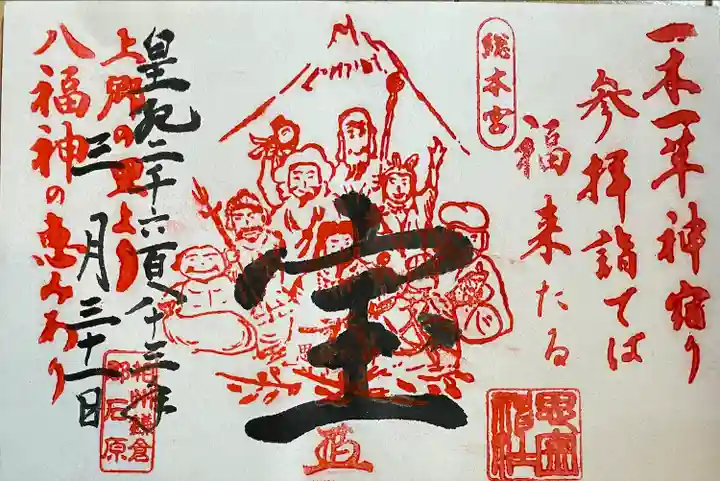 一木一草神宿り
参拝詣てば
福来たる
総本宮
宝
皇紀二千六百八十三年
三月三十一日
上郷の里より
八福神の恵みあり
相州鎌倉
郡石原